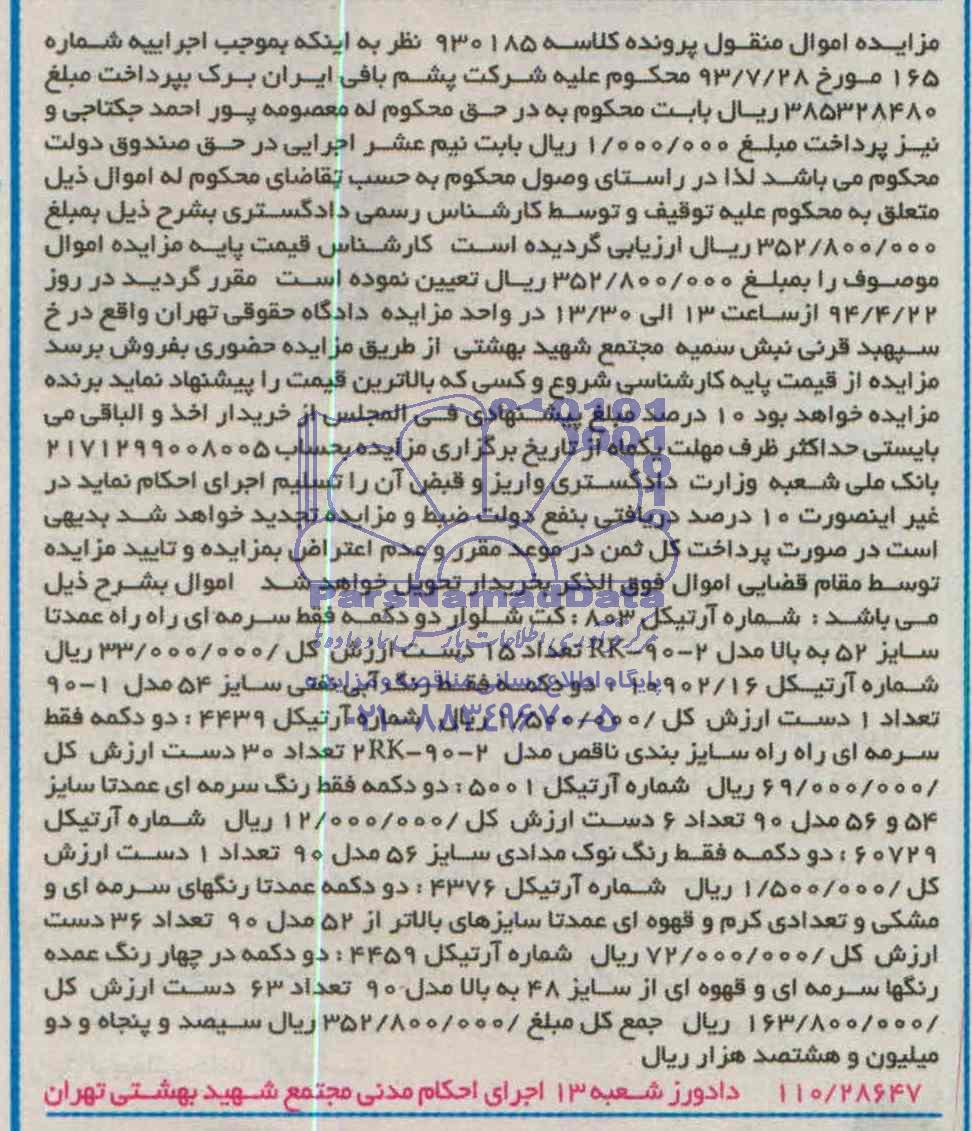 مزایده اموال منقول پرونده کلاسه ۹۳۰۱۸۵ نظر به اینکه بموجب اجراییه شماره
۱۶۵ مورخ ۹۳/۷/۲۸ محکوم علیه شرکت پشم بافی ایران برک بپرداخت مبلغ
۳۸۵۳۲۸۴۸۰ ریال بابت محکوم به در حق محکوم له معصومه پور احمد جکتاجی و
نیز پرداخت مبلغ ۱/۰۰۰/۰۰۰ ریال بابت نیم عشر اجرایی در حق صندوق دولت
محکوم می باشد لذا در راستای وصول محکوم به حسب تقاضای محکوم له اموال ذیل
متعلق به محکوم علیه توقیف و توسط کارشناس رسمی دادگستری بشرح ذیل بمبلغ
۳۵۲/۸۰۰/۰۰۰ ریال ارزیابی گردیده است کارشناس قیمت پایه مزایده اموال
موصوف را بمبلغ ۳۵۲/۸۰۰/۰۰۰ ریال تعیین نموده است مقرر گردید در روز
۹۴/۴/۲۲ ازساعت ۱۳ الی ۱۳/۳۰ در واحد مزایده دادگاه حقوقی تهران واقع در خ
سپهبد قرنی نبش سمیه مجتمع شهید بهشتی از طریق مزایده حضوری بفروش برسد
مزایده از قیمت پایه کارشناسی شروع و کسی که بالاترین قیمت را پیشنهاد نماید برنده
مزایده خواهد بود ۱۰ درصد مبلغ پیشنهادی فی المجلس از خریدار اخذ و الباقی می
بایستی حداکثر ظرف مهلت یکماه از تاریخ برگزاری مزایده بحساب ۲۱۷۱۲۹۹۰۰۸۰۰۵
بانک ملی شعبه وزارت دادگستری واریز و قبض آن را تسلیم اجرای احکام نماید در
غیر اینصورت ۱۰ درصد دریافتی بنفع دولت ضبط و مزایده تجدید خواهد شد بدیهی
است در صورت پرداخت کل ثمن در موعد مقرر و عدم اعتراض بمزایده و تایید مزایده
توسط مقام قضایی اموال فوق الذکر بخریدار تحویل خواهد شد اموال بشرح ذیل
ParsNamadData
می باشد : شماره آرتیکل ۸۰۳ : کت شلوار دو دکمه فقط سرمه ای راه راه عمدتا
سایز ۵۲ به بالا مدل RK-۹۰-۲ تعداد ۱۵ دست ارزش کل /۳۳/۰۰۰/۰۰۰ ریال
پایگاه اطلاع رسانی مناقصه و مزایده
شماره آرتیکل ۲۰۹۰۲/۱۶ : دو دکمه فقط رنگ آبی نفتی سایز ۵۴ مدل ۱-۹۰
۰۲۱-۸۸۳۴۹۶۷۰-۵
تعداد ۱ دست ارزش کل /۱/۵۰۰/۰۰۰ ریال شماره آرتیکل ۴۴۳۹ : دو دکمه فقط
سرمه ای راه راه سایز بندی ناقص مدل ۲RK-۹۰-۲ تعداد ۳۰ دست ارزش کل
/۶۹/۰۰۰/۰۰۰ ریال شماره آرتیکل ۵۰۰۱ : دو دکمه فقط رنگ سرمه ای عمدتا سایز
۵۴ و ۵۶ مدل ۹۰ تعداد ۶ دست ارزش کل /۱۲/۰۰۰/۰۰۰ ریال شماره آرتیکل
۶۰۷۲۹ : دو دکمه فقط رنگ نوک مدادی سایز ۵۶ مدل ۹۰ تعداد ۱ دست ارزش
کل /۱/۵۰۰/۰۰۰ ریال شماره آرتیکل ۴۳۷۶ : دو دکمه عمدتا رنگهای سرمه ای و
مشکی و تعدادی کرم و قهوه ای عمدتا سایزهای بالاتر از ۵۲ مدل ۹۰ تعداد ۳۶ دست
ارزش کل /۷۲/۰۰۰/۰۰۰ ریال شماره آرتیکل ۴۴۵۹ : دو دکمه در چهار رنگ عمده
رنگها سرمه ای و قهوه ای از سایز ۴۸ به بالا مدل ۹۰ تعداد ۶۳ دست ارزش کل
/۱۶۳/۸۰۰/۰۰۰ ریال جمع کل مبلغ /۳۵۲/۸۰۰/۰۰۰ ریال سیصد و پنجاه و دو
میلیون و هشتصد هزار ریال
۱۱۰/۲۸۶۴۷ دادورز شعبه ۱۳ اجرای احکام مدنی مجتمع شهید بهشتی تهران